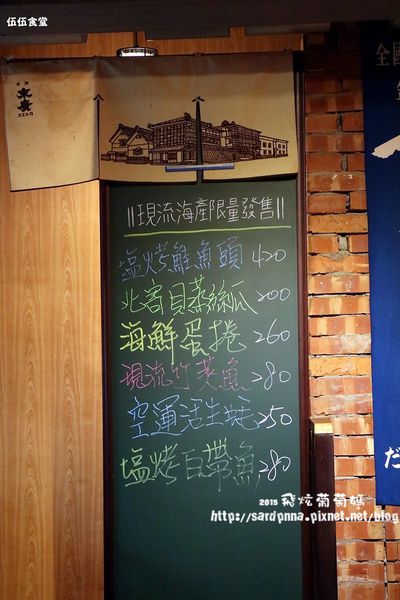 伍伍食堂
末廣
スエヒロ
全國
||現流海產限量發售||
塩烤鮭魚頭 420
北寄貝蒸絲瓜 200
海鮮蛋捲 260
現流竹莢魚 280
空運活生蚝 250
塩烤白帶魚 280
だ
2015 飛炫葡萄媽
http://sardpnna.pixnet.net/blog